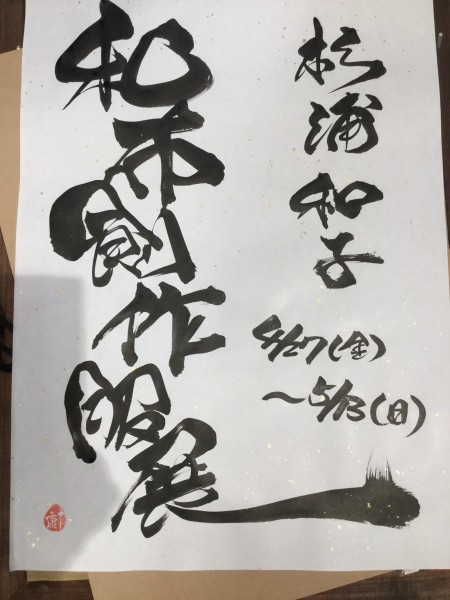 松浦和子
4/27(金)
～5/13(日)
和布創作服展